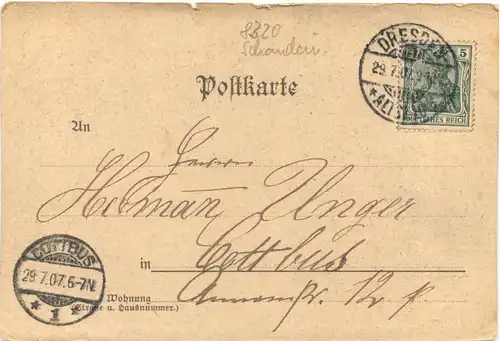 8320
Schandau.
DRESDEN
29.7.07
* ALTST.
5
DEUTSCHES REICH
Postkarte
An
Herrn
Hermann Unger
in Cottbus
COTTBUS
29.7.07.6-7N.
* 1 *
Wohnung
(Straße u. Hausnummer.)
12 p.